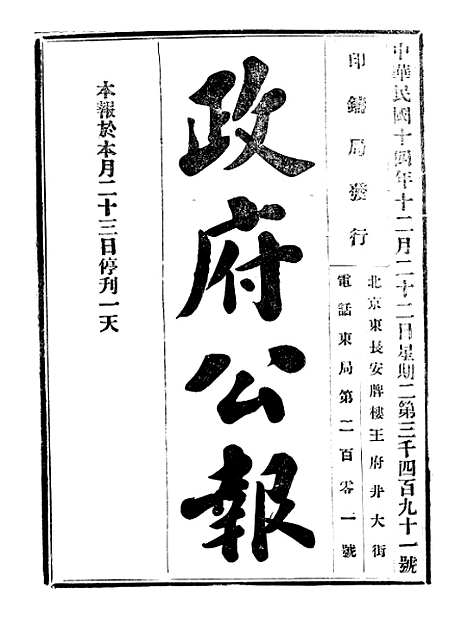 中華民國十四年十二月二十二日星期二第三千四百九十一號
印鑄局發行
北京東長安牌樓王府井大街
電話東局第二百零一號
政府公報
本報於本月二十三日停刊一天